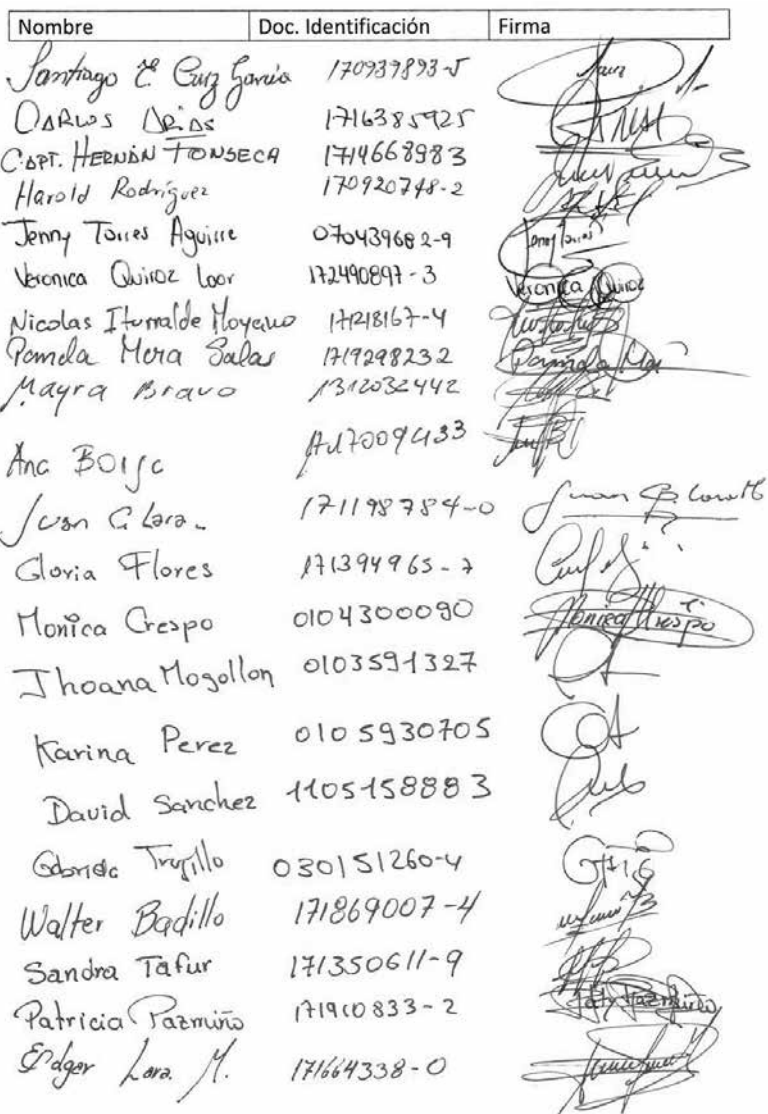 Nombre Doc. Identificación Firma
Santiago E. Cruz García 170939893-5
CARLOS ARIAS 1716385925
CAPT. HERNÁN FONSECA 1714668983
Harold Rodríguez 170920748-2
Jenny Torres Aguirre 070439682-9 Jenny Torres
Veronica Quiroz Loor 172490897-3 Veronica Quiroz
Nicolas Iturralde Moyano 171218167-4
Pamela Mera Salas 1719298232 Pamela
Mayra Bravo 1312032442
Ana Borja 1717009433
Juan C. Lara 171198784-0 Juan
Gloria Flores 171394965-7
Monica Crespo 0104300090 Monica Crespo
Jhoana Mogollon 0103591327
Karina Perez 0105930705
David Sanchez 1105158883
Gabriela Trujillo 030151260-4
Walter Badillo 171869007-4
Sandra Tafur 171350611-9
Patricia Pazmiño 171910833-2 Paty Pazmiño
Edgar Lara. M. 171664338-0